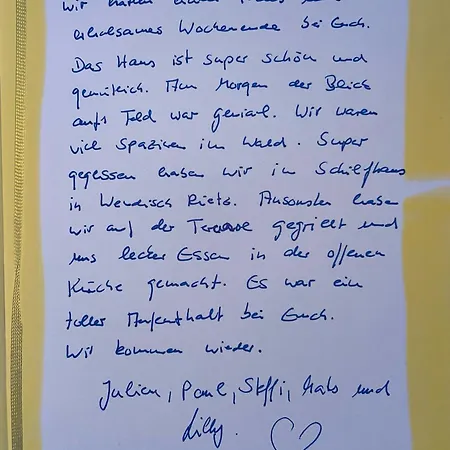 Wir hatten
erholsames Wochenende bei Euch.
Das Haus ist super schön und
gemütlich. Am Morgen der Blick
aufs Feld war genial. Wir waren
viel Spazieren im Wald. Super
gegessen haben wir im Schilfhaus
in Wendisch Rietz. Ansonsten haben
wir auf der Terrasse gegrillt und
uns lecker Essen in der offenen
Küche gemacht. Es war ein
toller Aufenthalt bei Euch.
Wir kommen wieder.
Julien, Paul, Steffi, und
Lilly.